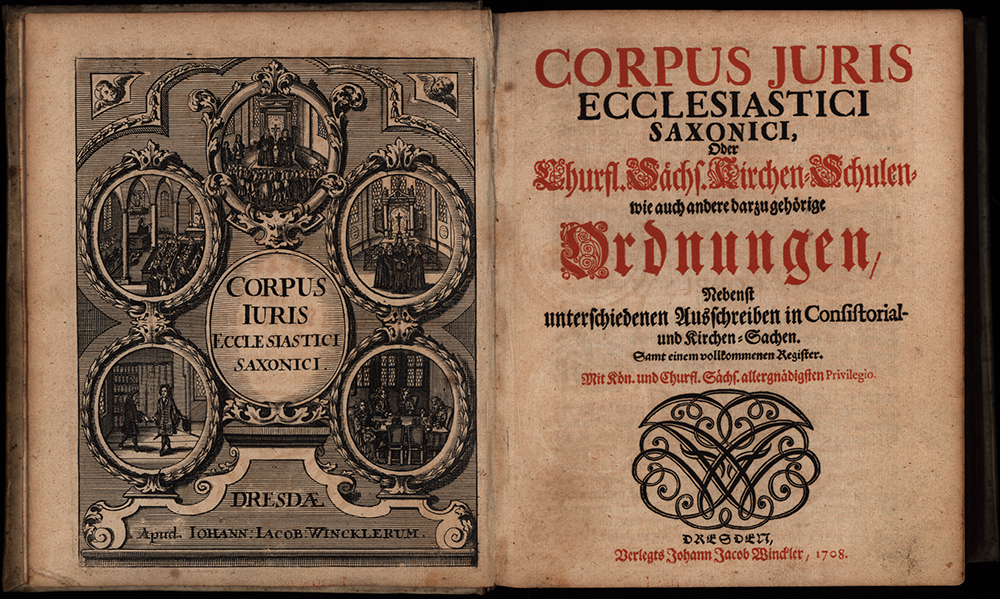 CORPUS
IURIS
ECCLESIASTICI
SAXONICI.
DRESDÆ
Apud. IOHANN: IACOB: WINCKLERUM.
CORPUS JURIS
ECCLESIASTICI
SAXONICI,
Oder
Churfl. Sächs. Kirchen-Schulen-
wie auch andere darzu gehörige
Ordnungen,
Nebenst
unterschiedenen Ausschreiben in Consistorial-
und Kirchen-Sachen.
Samt einem vollkommenen Register.
Mit Kön. und Churfl. Sächs. allergnädigsten Privilegio.
DRESDEN,
Verlegts Johann Jacob Winckler, 1708.